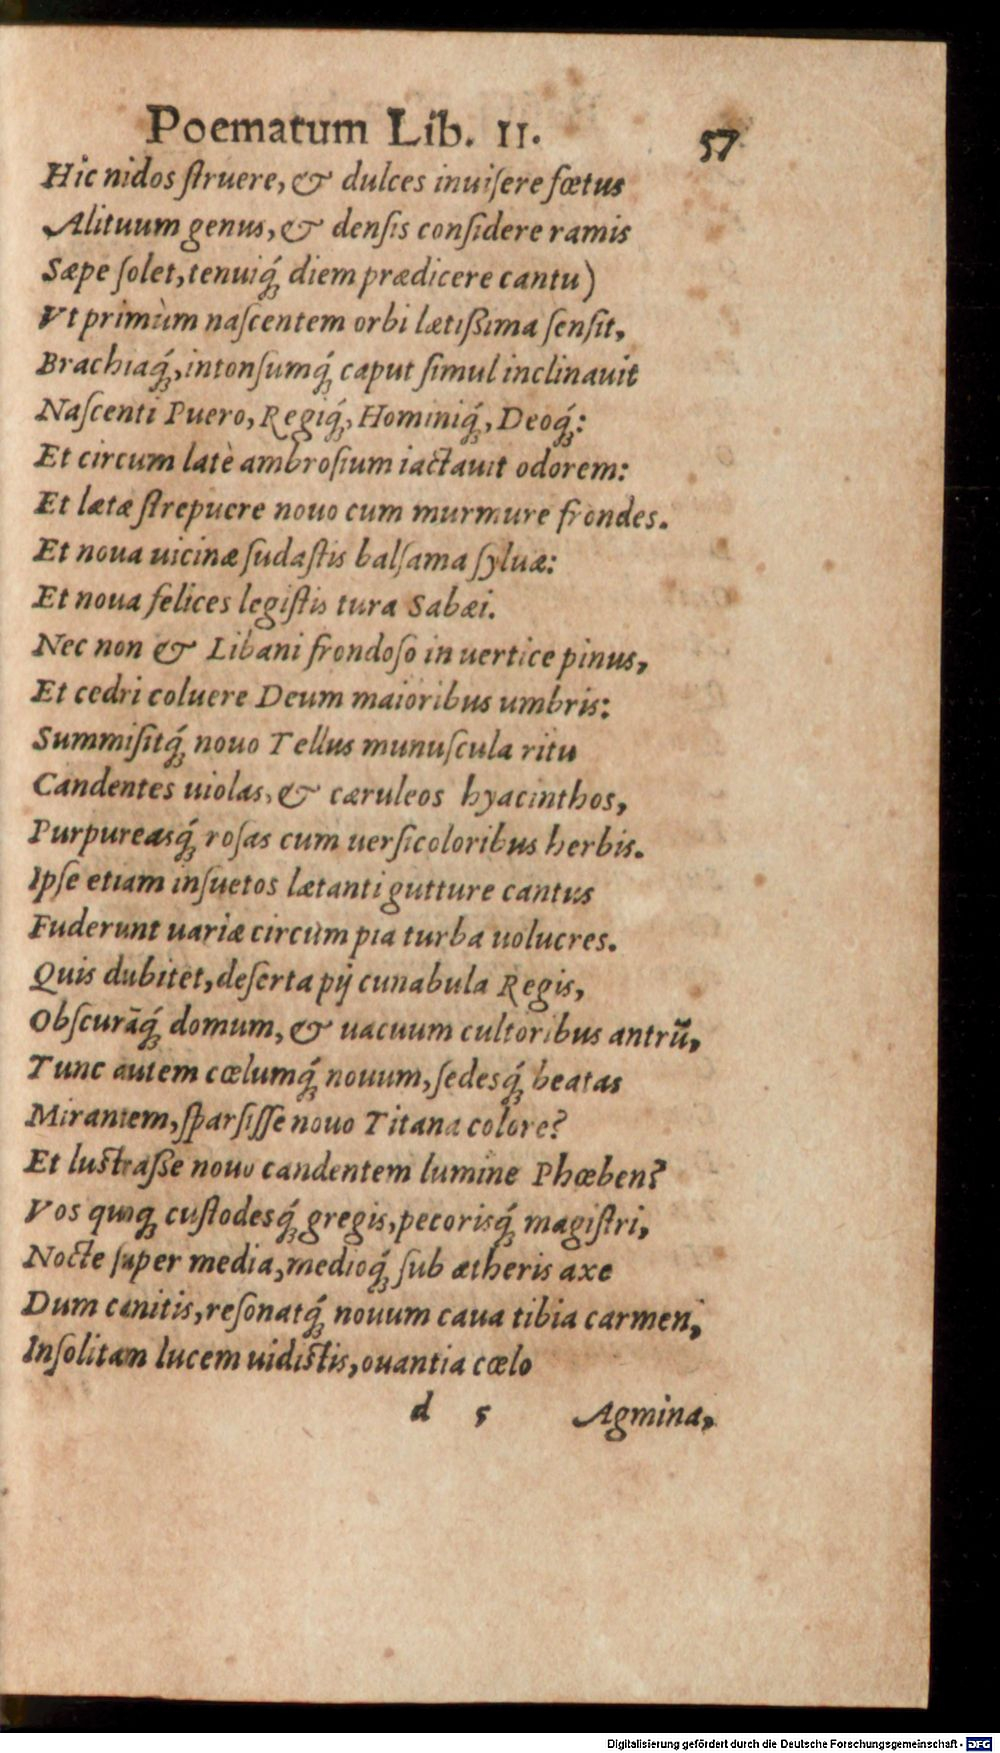 Poematum Lib. II. 57
Hic nidos ſtruere, & dulces inuiſere fœtus
Alituum genus, & denſis conſidere ramis
Sæpe ſolet, tenuiq́; diem prædicere cantu)
Vt primùm naſcentem orbi lætißima ſenſit,
Brachiaq́;, intonſumq́; caput ſimul inclinauit
Naſcenti Puero, Regiq́;, Hominiq́;, Deoq́;:
Et circum latè ambroſium iactauit odorem:
Et lætæ ſtrepuere nouo cum murmure frondes.
Et noua uicinæ ſudaſtis balſama ſyluæ:
Et noua felices legiſtis tura Sabæi.
Nec non & Libani frondoſo in uertice pinus,
Et cedri coluere Deum maioribus umbris:
Summiſitq́; nouo Tellus munuſcula ritu
Candentes uiolas, & cæruleos hyacinthos,
Purpureasq́; roſas cum uerſicoloribus herbis.
Ipſe etiam inſuetos lætanti gutture cantus
Fuderunt uariæ circùm pia turba uolucres.
Quis dubitet, deſerta pij cunabula Regis,
Obſcurāq́; domum, & uacuum cultoribus antrū,
Tunc autem cœlumq́; nouum, ſedesq́; beatas
Mirantem, ſparſiſſe nouo Titana colore?
Et luſtraſſe nouo candentem lumine Phœben?
Vos quoq; cuſtodesq́; gregis, pecorisq́; magiſtri,
Nocte ſuper media, medioq́; ſub ætheris axe
Dum canitis, reſonatq́; nouum caua tibia carmen,
Inſolitam lucem uidiſtis, ouantia cœlo
d 5 Agmina,
Digitalisierung gefördert durch die Deutsche Forschungsgemeinschaft - DFG